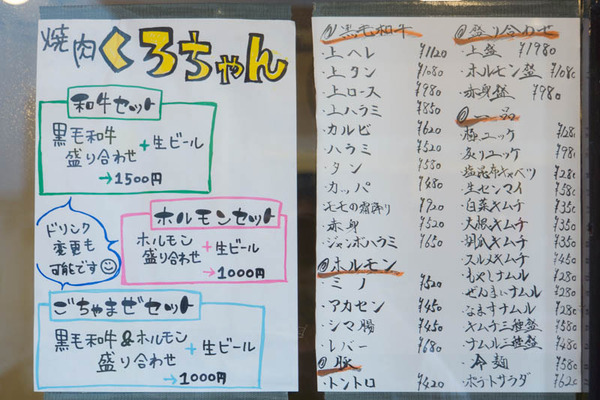 焼肉くろちゃん
和牛セット
黒毛和牛
盛り合わせ
+生ビール
→1500円
ドリンク
変更も
可能です
ホルモンセット
ホルモン
盛り合わせ
+生ビール
→1000円
ごちゃまぜセット
黒毛和牛&ホルモン
盛り合わせ
+生ビール
→1000円
黒毛和牛
・上ヘレ ¥1120
・上タン ¥1080
・上ロース ¥980
・上ハラミ ¥850
・カルビ ¥620
・ハラミ ¥520
・タン ¥580
・カッパ ¥480
・モモの霜降り ¥920
・赤身 ¥520
・ジャンボハラミ ¥650
ホルモン
・ミノ ¥520
・アカセン ¥450
・シマ腸 ¥450
・レバー ¥680
豚
・トントロ ¥420
盛り合わせ
・上盛 ¥1980
・ホルモン盛 ¥1080
・赤身盛 ¥980
一品
・極ユッケ
・炙りユッケ ¥980
・塩昆布キャベツ ¥280
・生センマイ ¥580
・白菜キムチ ¥350
・大根キムチ ¥350
・胡瓜キムチ ¥350
・スルメキムチ ¥450
・もやしナムル ¥280
・ぜんまいナムル ¥280
・なますナムル ¥280
・キムチ三種盛 ¥580
・ナムル三種盛 ¥480
・冷麺 ¥580
・ポテトサラダ ¥620